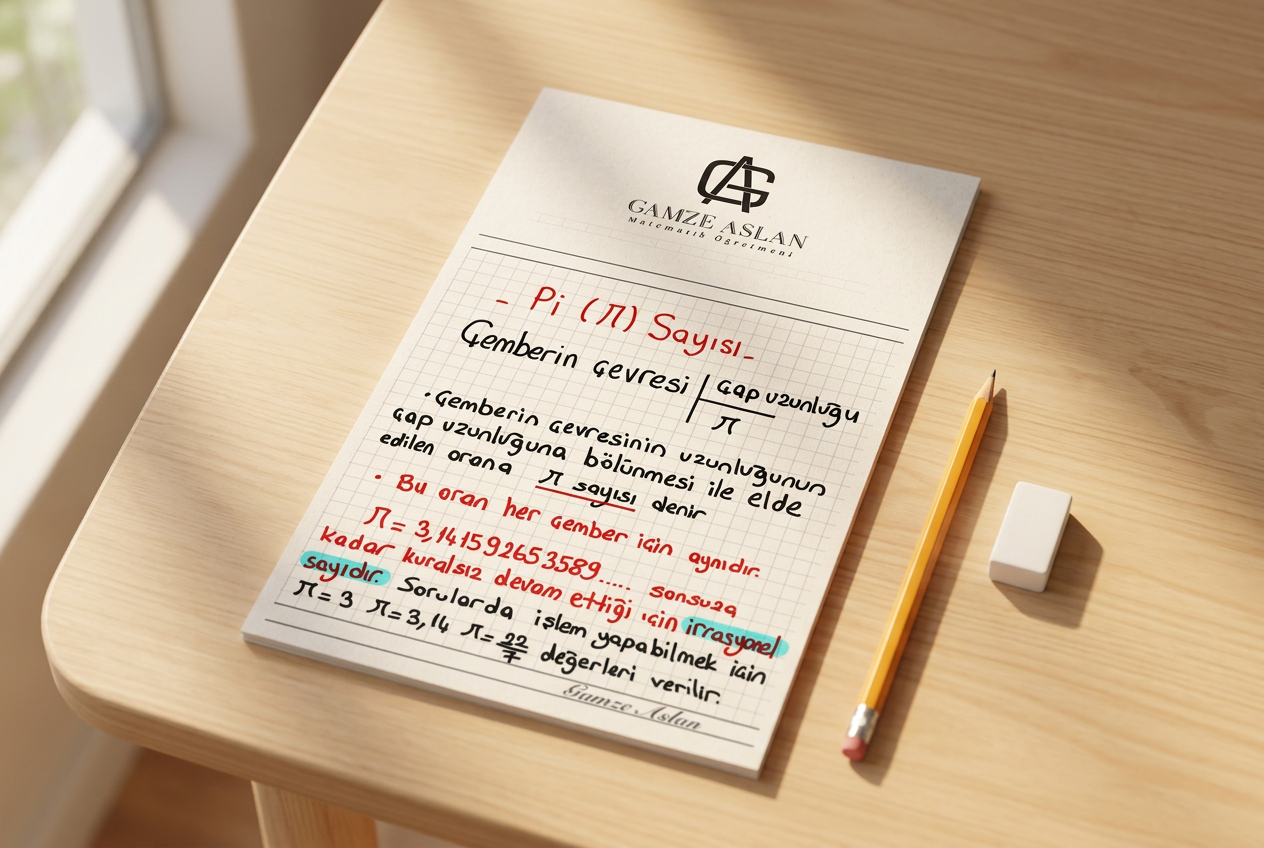 GA
GAMZE ASLAN
Matematik Öğretmeni
- Pi (π) Sayısı -
Çemberin çevresi | çap uzunluğu
π
• Çemberin çevresinin uzunluğunun
çap uzunluğuna bölünmesi ile elde
edilen orana π sayısı denir
• Bu oran her çember için aynıdır.
π = 3,141592653589..... sonsuza
kadar kuralsız devam ettiği için irrasyonel
sayıdır. Sorularda işlem yapabilmek için
π = 3 π = 3,14 π = 22/7 değerleri verilir.
Gamze Aslan